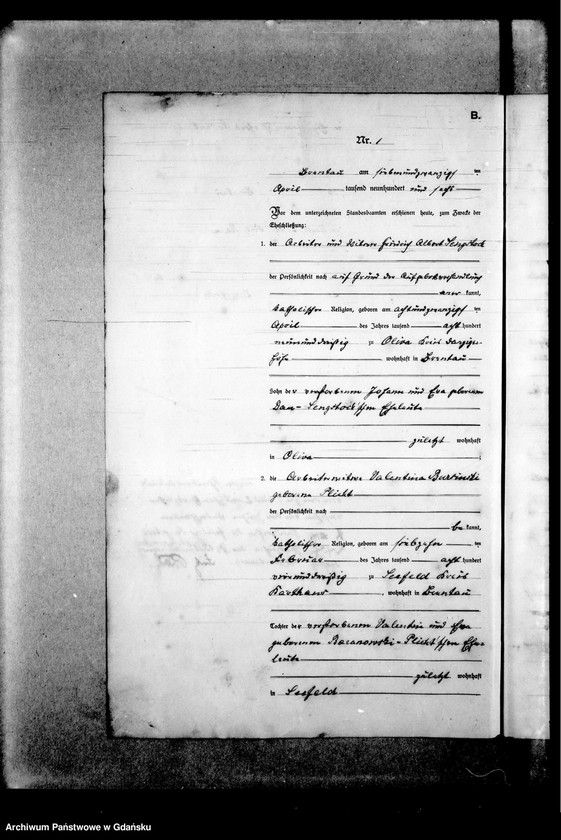 B.
Nr. 1
Brentau am siebenundzwanzigsten
April tausend neunhundert und sechs
Vor dem unterzeichneten Standesbeamten erschienen heute, zum Zwecke der
Eheschließung:
1. der Arbeiter und Witwer Friedrich Albert Sengstock
der Persönlichkeit nach auf Grund der Aufgebotsverhandlung
aner kannt,
katholischer Religion, geboren am achtundzwanzigsten
April des Jahres tausend acht hundert
neununddreißig zu Oliva Kreis Danziger
Höhe, wohnhaft in Brentau
Sohn der verstorbenen Johann und Eva geborenen
Sengstock'schen Eheleute
zuletzt wohnhaft
in Oliva.
2. die Arbeiterwitwe Valentina
geborene Plicht
der Persönlichkeit nach
be kannt,
katholischer Religion, geboren am siebzehn
Februar des Jahres tausend acht hundert
vierunddreißig zu Seefeld Kreis
Karthaus, wohnhaft in Brentau
Tochter der verstorbenen Valentin und
geborenen Baranowski-Plicht'schen Ehe-
leute
zuletzt wohnhaft
in Seefeld
Archiwum Państwowe w Gdańsku